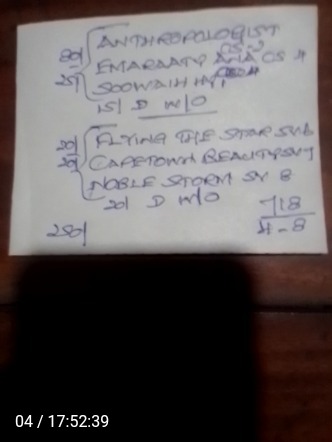 80/ ANTHROPOLOGIST CS-2
EMARAATY ANA CS 4
25/ SOOWAIH HY 1
15/ D W/O
20/ FLYING THE STAR SV 6
20/ CAPETOWN BEAUTY SV 7
NOBLE STORM SV 8
20/ D W/O
718
250/ 4-8
04 / 17:52:39